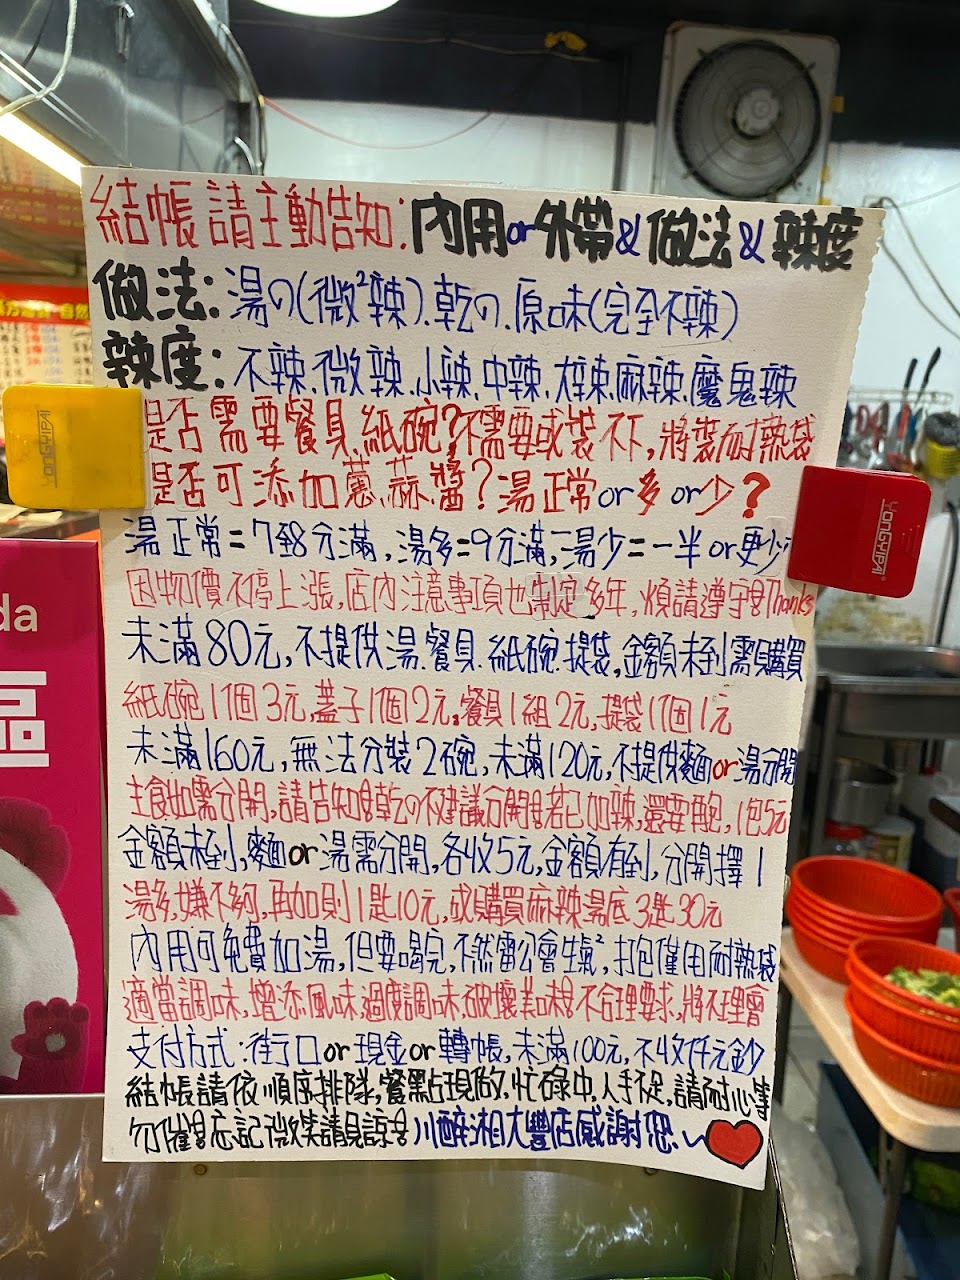 結帳請主動告知:內用or外帶&做法&辣度
做法:湯の(微²辣).乾の.原味(完全不辣)
辣度:不辣.微辣.小辣.中辣.大辣.麻辣.魔鬼辣
是否需要餐具.紙碗?不需要或裝不下,將裝耐熱袋
是否可添加蔥.蒜.醬?湯正常or多or少?
湯正常=7到8分滿,湯多=9分滿,湯少=一半or更少
因物價不停上漲,店內注意事項也制定多年,煩請遵守!Thanks
未滿80元,不提供湯.餐具.紙碗.提袋,金額未到需購買
紙碗1個3元,蓋子1個2元,餐具1組2元,提袋1個1元
未滿160元,無法分裝2碗,未滿120元,不提供麵or湯分開
主食如需分開,請告知!乾の不建議分開!若已加辣,還要再包,1包5元
金額未到,麵or湯需分開,各收5元,金額有到,分開擇1
湯多,嫌不夠,再加則1匙10元,或購買麻辣湯底3匙30元
內用可免費加湯,但要喝完,不然雷公會生氣²,打包僅用耐熱袋
適當調味,增添風味,過度調味,破壞美味!不合理要求,將不理會
支付方式:街口or現金or轉帳,未滿100元,不收仟元鈔
結帳請依順序排隊,餐點現做,忙碌中,人手不足,請耐心等
勿催!忘記微笑請見諒!川醉湘大豐店感謝您~
YONGYIPAI
YONGYIPAI
da
區